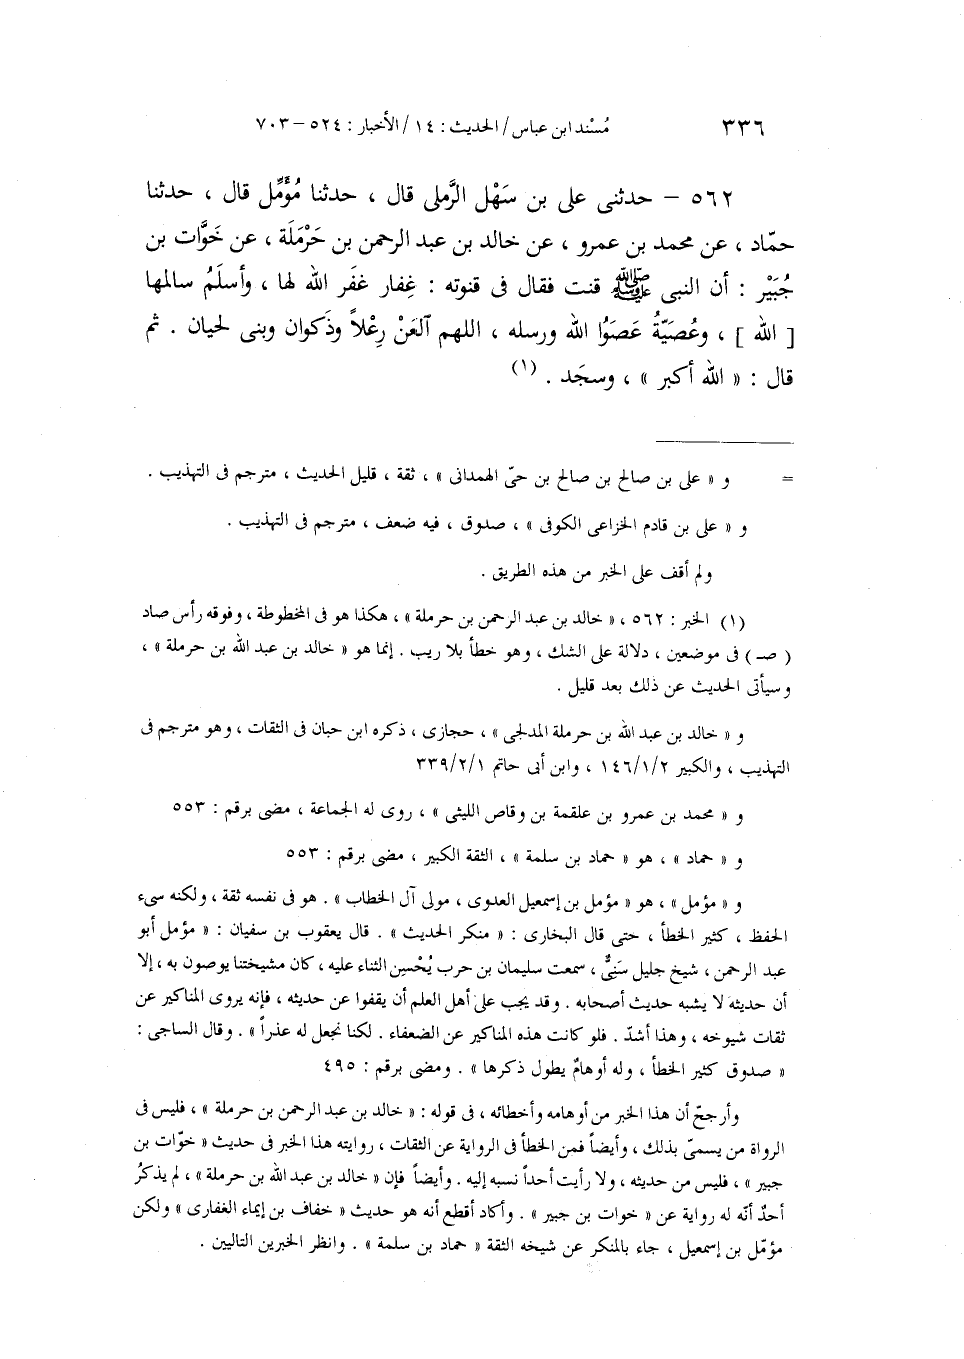 ٣٣٦ مُسْند ابن عباس / الحديث : ١٤ / الأخبار : ٥٢٤ – ٧٠٣
٥٦٢ – حدثنى على بن سَهْل الرَّملى قال ، حدثنا مُؤَمَّل قال ، حدثنا
حمّاد ، عن محمد بن عمرو ، عن خالد بن عبد الرحمن بن حَرْمَلَة ، عن خَوَّات بن
جُبَيْر : أن النبى ﷺ قنت فقال فى قنوته : غِفار غفَر الله لها ، وأسلَمُ سالمها
[ الله ] ، وعُصَيَّةُ عَصَوُا الله ورسله ، اللهم ٱلعَنْ رِعْلاً وذَكوان وبنى لحيان . ثم
قال : « الله أكبر » ، وسجَد . (١)
= و « على بن صالح بن صالح بن حىّ الهمدانى » ، ثقة ، قليل الحديث ، مترجم فى التهذيب .
و « على بن قادم الخزاعى الكوفى » ، صدوق ، فيه ضعف ، مترجم فى التهذيب .
ولم أقف على الخبر من هذه الطريق .
(١) الخبر : ٥٦٢ ، « خالد بن عبد الرحمن بن حرملة » ، هكذا هو فى المخطوطة ، وفوقه رأس صاد
( صـ ) فى موضعين ، دلالة على الشك ، وهو خطأ بلا ريب . إنما هو « خالد بن عبد الله بن حرملة » ،
وسيأتى الحديث عن ذلك بعد قليل .
و « خالد بن عبد الله بن حرملة المدلجى » ، حجازى ، ذكره ابن حبان فى الثقات ، وهو مترجم فى
التهذيب ، والكبير ١٤٦/١/٢ ، وابن أبى حاتم ٣٣٩/٢/١
و « محمد بن عمرو بن علقمة بن وقاص الليثى » ، روى له الجماعة ، مضى برقم : ٥٥٣
و « حماد » ، هو « حماد بن سلمة » ، الثقة الكبير ، مضى برقم : ٥٥٣
و « مؤمل » ، هو « مؤمل بن إسمعيل العدوى ، مولى آل الخطاب » . هو فى نفسه ثقة ، ولكنه سىء
الحفظ ، كثير الخطأ ، حتى قال البخارى : « منكر الحديث » . قال يعقوب بن سفيان : « مؤمل أبو
عبد الرحمن ، شيخ جليل سَنِىٌّ ، سمعت سليمان بن حرب يُحْسِين الثناء عليه ، كان مشيختنا يوصون به ، إلا
أن حديثه لا يشبه حديث أصحابه . وقد يجب على أهل العلم أن يقفوا عن حديثه ، فإنه يروى المناكير عن
ثقات شيوخه ، وهذا أشدّ . فلو كانت هذه المناكير عن الضعفاء . لكنا نجعل له عذراً » . وقال الساجى :
« صدوق كثير الخطأ ، وله أوهامٌ يطول ذكرها » . ومضى برقم : ٤٩٥
وأرجحّ أن هذا الخبر من أوهامه وأخطائه ، فى قوله : « خالد بن عبد الرحمن بن حرملة » ، فليس فى
الرواة من يسمىّ بذلك ، وأيضاً فمن الخطأ فى الرواية عن الثقات ، روايته هذا الخبر فى حديث « خوّات بن
جبير » ، فليس من حديثه ، ولا رأيت أحداً نسبه إليه . وأيضاً فإن « خالد بن عبد الله بن حرملة » ، لم يذكرُ
أحدٌ أنّه له رواية عن « خوات بن جبير » . وأكاد أقطع أنه هو حديث « خفاف بن إيماء الغفارى » ولكن
مؤمّل بن إسمعيل ، جاء بالمنكر عن شيخه الثقة « حماد بن سلمة » . وانظر الخبرين التاليين .